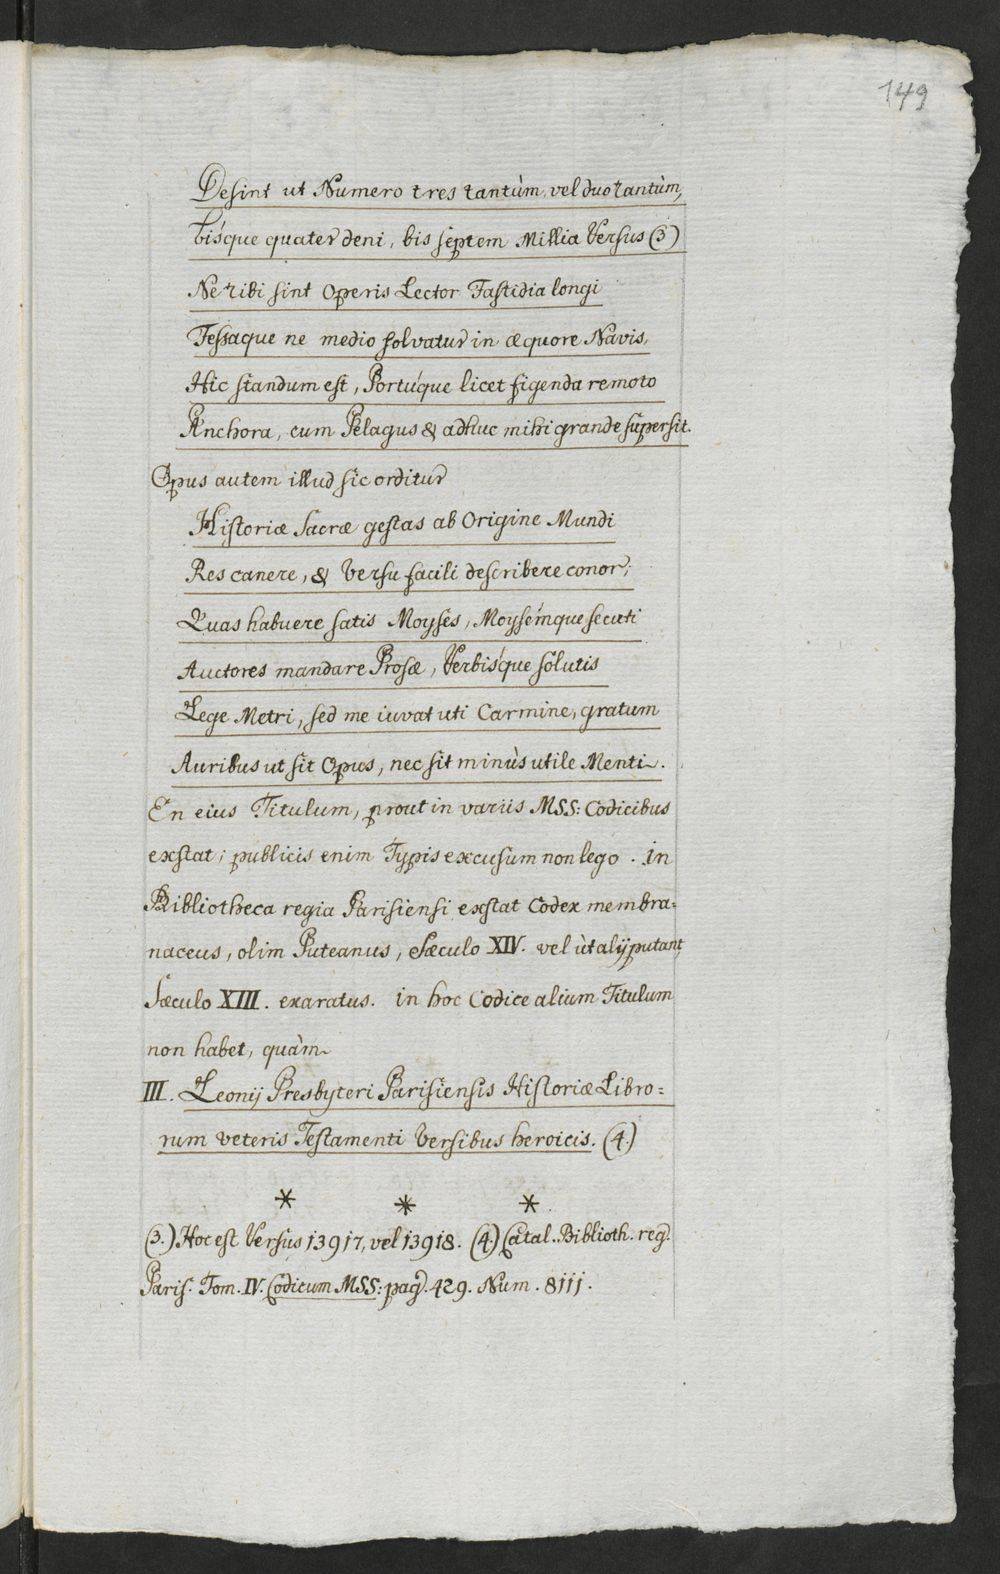 149
Desint ut Numero tres tantùm, vel duo tantùm,
bísque quater deni, bis septem Millia Versus (3)
Ne tibi sint Operis Lector Fastidia longi
Fessaque ne medio solvatur in æquore Navis,
Hic standum est, Portúque licet figenda remoto
Anchora, cum Pelagus & adhuc mihi grande supersit.
Opus autem illud sic orditur
Historiæ Sacræ gestas ab Origine Mundi
Res canere, & Versu facili describere conor;
Quas habuere satis Moyses, Moysémque secuti
Auctores mandare Prosæ, Verbísque solutis
Lege Metri, sed me iuvat uti Carmine, gratum
Auribus ut sit Opus, nec sit minùs utile Menti.
En eius Titulum, prout in variis MSS: Codicibus
exstat; publicis enim Typis excusum non lego. In
Bibliotheca regia Parisiensi exstat Codex membra=
naceus, olim Puteanus, Sæculo XIV. vel ùt alij putant,
Sæculo XIII. exaratus. in hoc Codice alium Titulum
non habet, quàm
III. Leonij Presbyteri Parisiensis Historiæ Libro=
rum veteris Testamenti Versibus heroicis. (4.)
* * *
(3.) Hoc est Versus 13917, vel 13918. (4.) Catal. Biblioth. reg.
Paris. Tom. IV. Codicum MSS: pag. 429. Num. 8111.